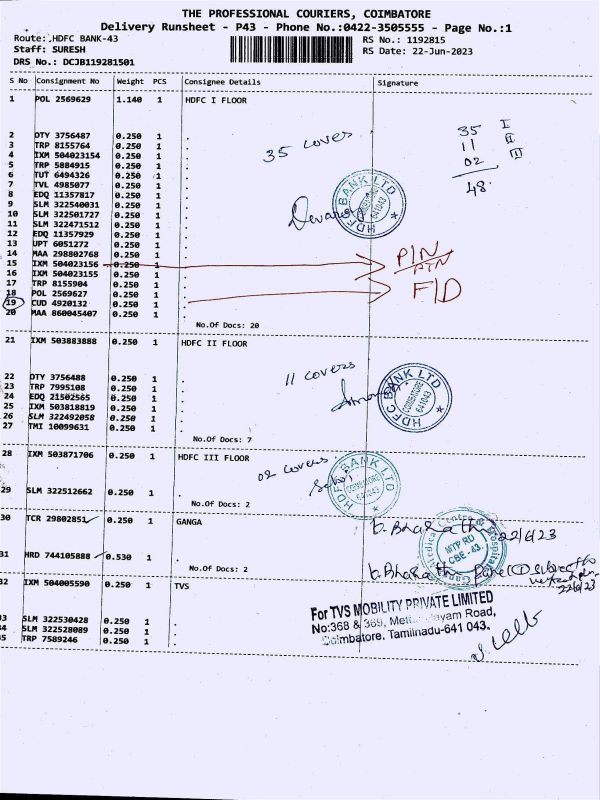 THE PROFESSIONAL COURIERS, COIMBATORE
Delivery Runsheet - P43 - Phone No.:0422-3505555 - Page No.:1
Route: HDFC BANK-43 RS No.: 1192815
Staff: SURESH RS Date: 22-Jun-2023
DRS No.: DCJB119281501
S No Consignment No Weight PCS Consignee Details Signature
1 POL 2569629 1.140 1 HDFC I FLOOR
35 covers
35 I
11 II
02 III
48
2 DTY 3756487 0.250 1 .
3 TRP 8155764 0.250 1 .
4 IXM 504023154 0.250 1 .
5 TRP 5884915 0.250 1 .
6 TUT 6494326 0.250 1 .
7 TVL 4985077 0.250 1 .
8 EDQ 11357817 0.250 1 .
9 SLM 322540031 0.250 1 .
10 SLM 322501727 0.250 1 .
11 SLM 322471512 0.250 1 .
12 EDQ 11357929 0.250 1 .
13 UPT 6051272 0.250 1 .
14 MAA 298802768 0.250 1 .
15 IXM 504023156 0.250 1 .
16 IXM 504023155 0.250 1 .
17 TRP 8155904 0.250 1 .
18 POL 2569627 0.250 1 .
19 CUD 4920132 0.250 1 .
20 MAA 860045407 0.250 1 .
HDFC BANK LTD
641043
PIN
PIN
F/D
No.Of Docs: 20
21 IXM 503883888 0.250 1 HDFC II FLOOR
11 covers
22 DTY 3756488 0.250 1 .
23 TRP 7995108 0.250 1 .
24 EDQ 21502565 0.250 1 .
25 IXM 503818819 0.250 1 .
26 SLM 322492058 0.250 1 .
27 TMI 10099631 0.250 1 .
HDFC BANK LTD
COIMBATORE
641043
No.Of Docs: 7
28 IXM 503871706 0.250 1 HDFC III FLOOR
02 covers
29 SLM 322512662 0.250 1 .
HDFC BANK LTD
641043
No.Of Docs: 2
30 TCR 29802851 0.250 1 GANGA
b. Bharathi 22/6/23
MTP RD
CBE - 43
31 HRD 744105888 0.530 1 .
No.Of Docs: 2
b. Bharathi
22/6/23
32 IXM 504005590 0.250 1 TVS
For TVS MOBILITY PRIVATE LIMITED
No:368 & 369, Road,
Coimbatore, Tamilnadu-641 043.
33 SLM 322530428 0.250 1 .
34 SLM 322528089 0.250 1 .
35 TRP 7589246 0.250 1 .